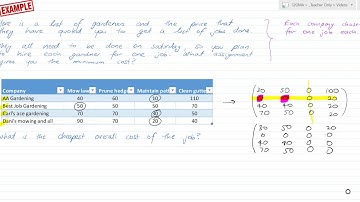 EXAMPLE
Here is a list of gardeners and the price that
they have quoted you to get a list of jobs done
They all need to be done on Saturday, so you plan
to hire each gardener for one job. What assignment
gives you the minimum cost?
Each company chosen
for one job each
Company Mow lawn Prune hedge Maintain path Clean gutter
AA Gardening 40 60 10 110
Best Job Gardening 50 50 50 70
Carl's are gardening 70 70 30 50
Dani's mowing and all 90 70 20 40
What is the cheapest overall cost of the job?
20 50 0 100
0 20
40 40 0 20
70 50 0 20
30 50 0
0 0 0
40 40 0 0
70 50 0 0